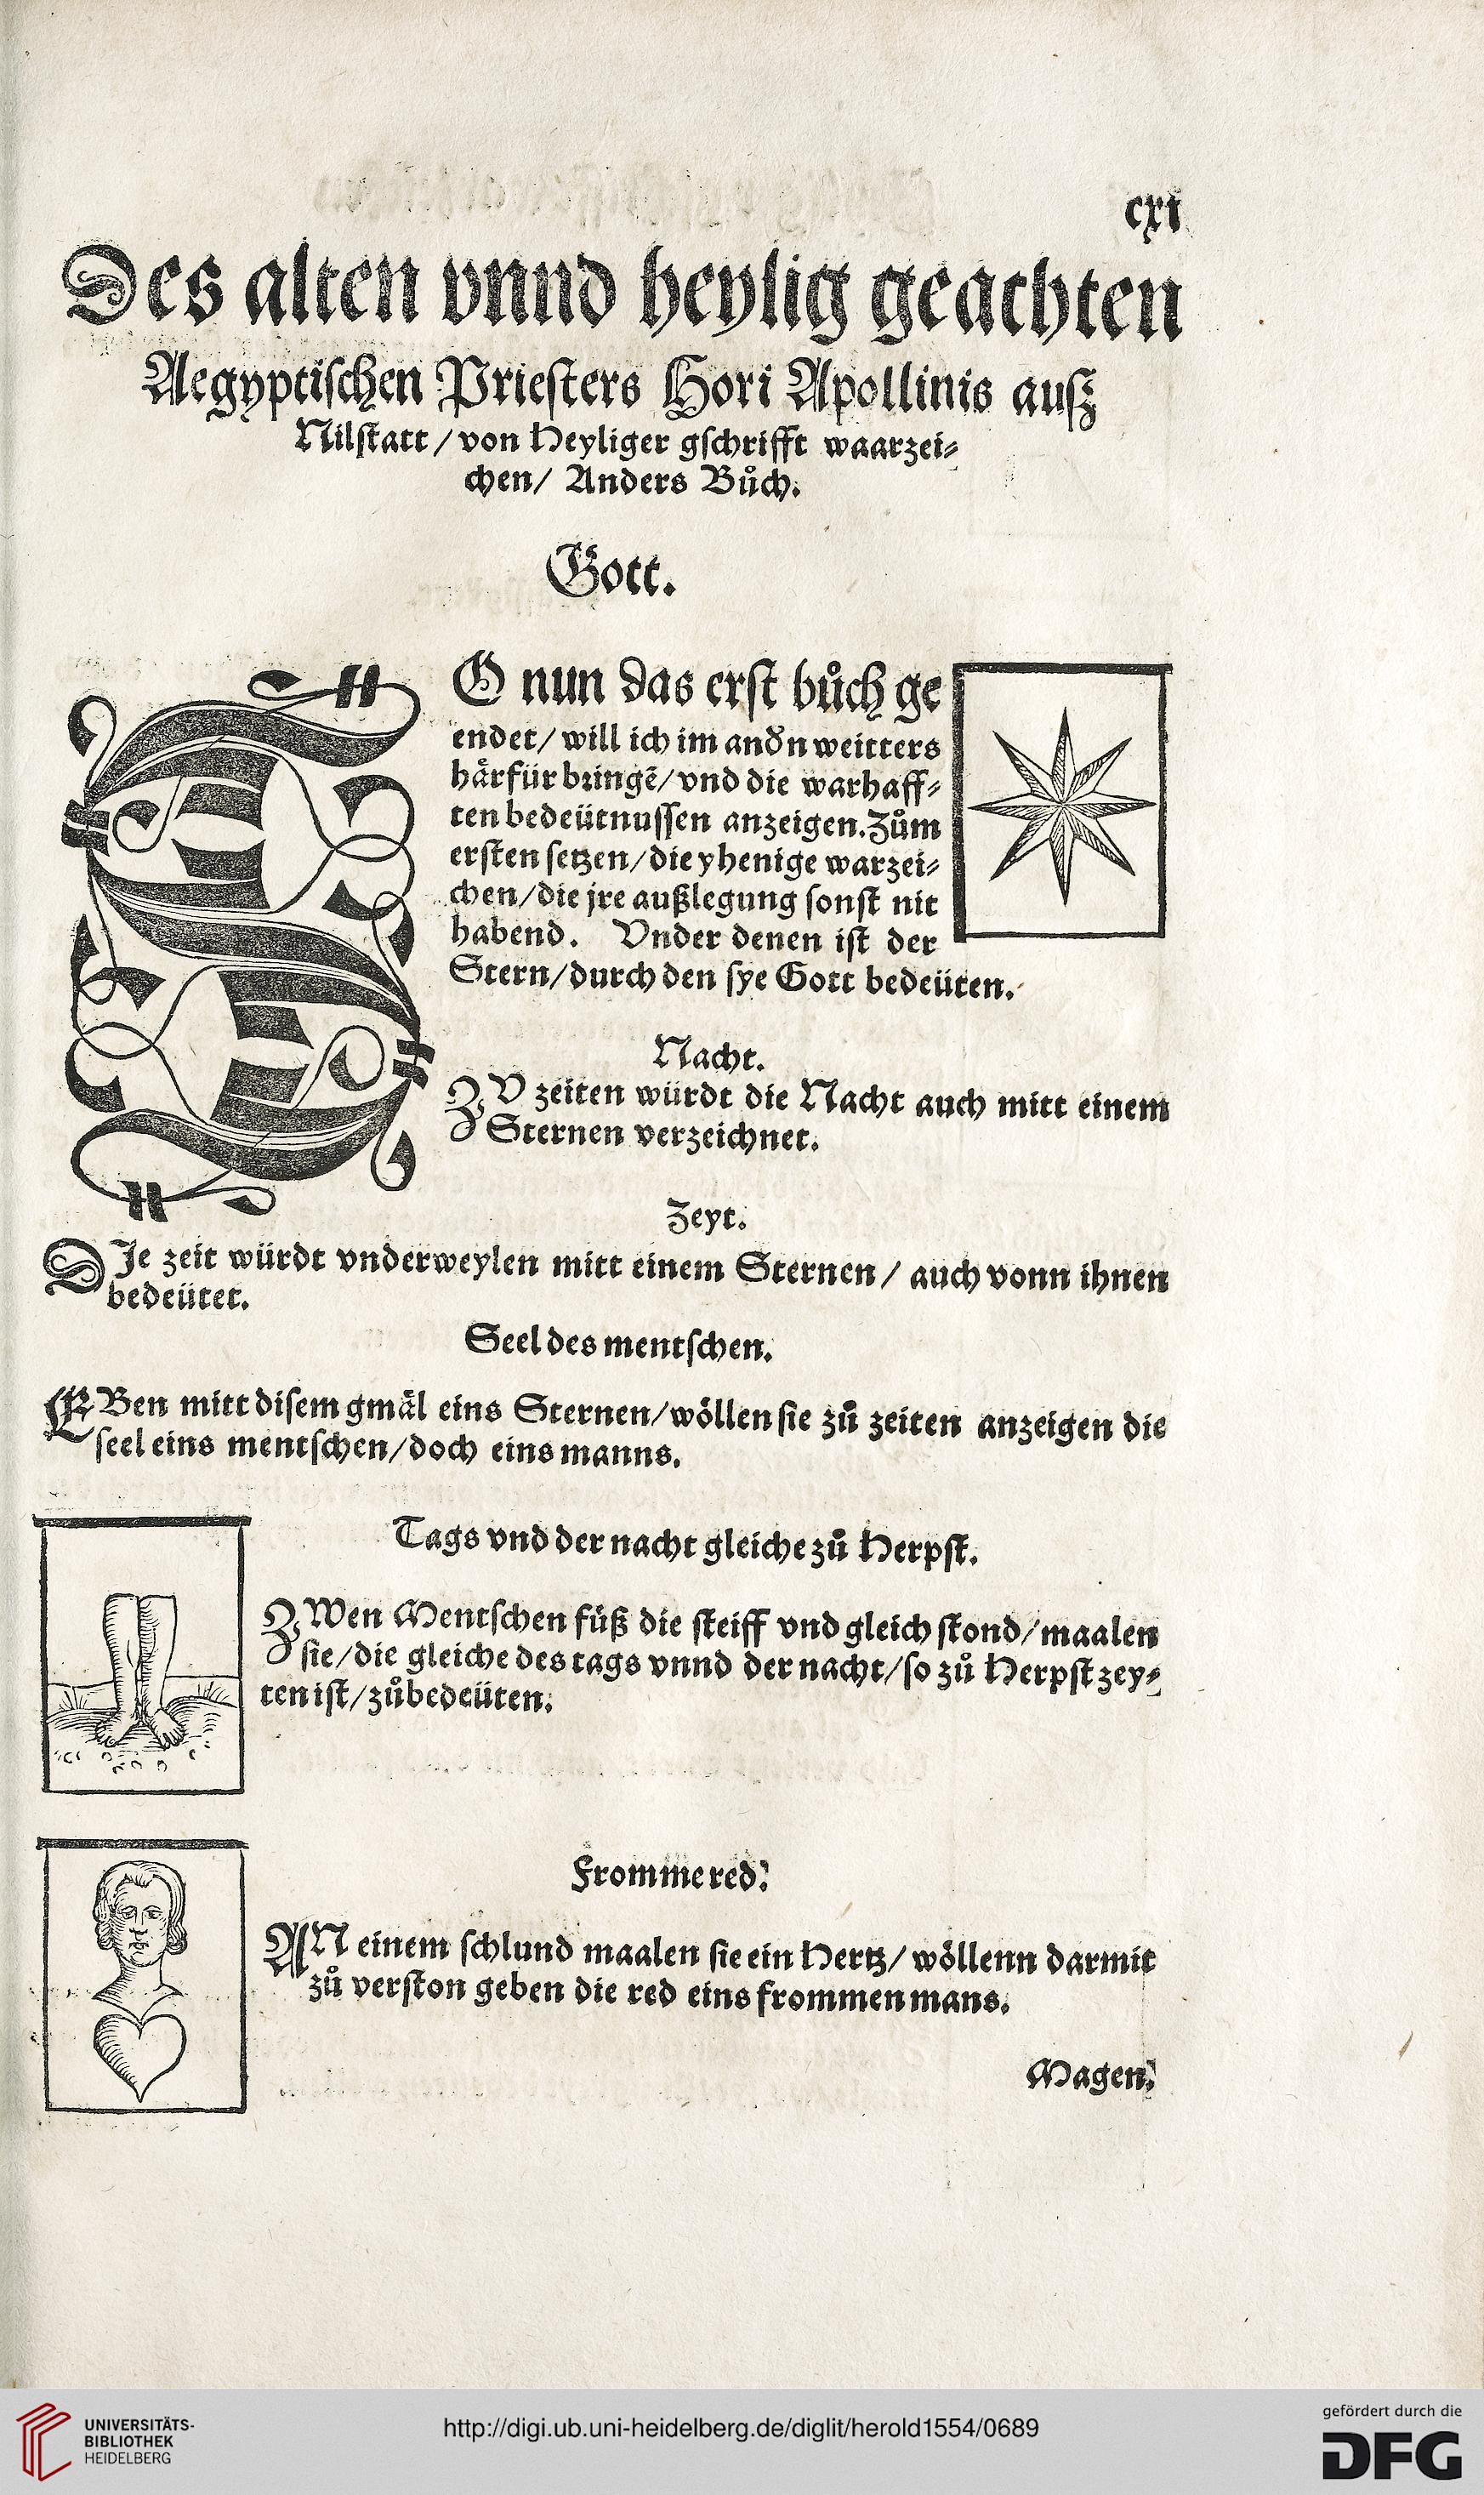 cxi
Des alten vnnd heylig geachten
Aegyptischen Priesters Hori Apollinis ausz
Nilstatt / von Heyliger gschrifft waarzei⸗
chen / Anders Bůch.
Gott.
SO nun das erst bůch ge
endet / will ich im andn weitters
härfür bringē / vnd die warhaff⸗
ten bedeütnussen anzeigen. Zům
ersten setzen / die yhenige warzei⸗
chen / die jre außlegung sonst nit
habend. Vnder denen ist der
Stern / durch den sye Gott bedeüten.
Nacht.
ZV zeiten würdt die Nacht auch mitt einem
Sternen verzeichnet.
Zeyt.
DIe zeit würdt vnderweylen mitt einem Sternen / auch vonn ihnen
bedeütet.
Seel des mentschen.
EBen mitt disem gmäl eins Sternen / wöllen sie zů zeiten anzeigen die
seel eins mentschen / doch eins manns.
Tags vnd der nacht gleiche zů Herpst.
ZWen Mentschen füß die steiff vnd gleich stond / maalen
sie / die gleiche des tags vnnd der nacht / so zů Herpst zey⸗
ten ist / zůbedeüten.
Fromme red.
AN einem schlund maalen sie ein Hertz / wöllenn darmit
zů verston geben die red eins frommen mans.
Magen.
UNIVERSITÄTS-
BIBLIOTHEK
HEIDELBERG
http://digi.ub.uni-heidelberg.de/diglit/herold1554/0689
gefördert durch die
DFG